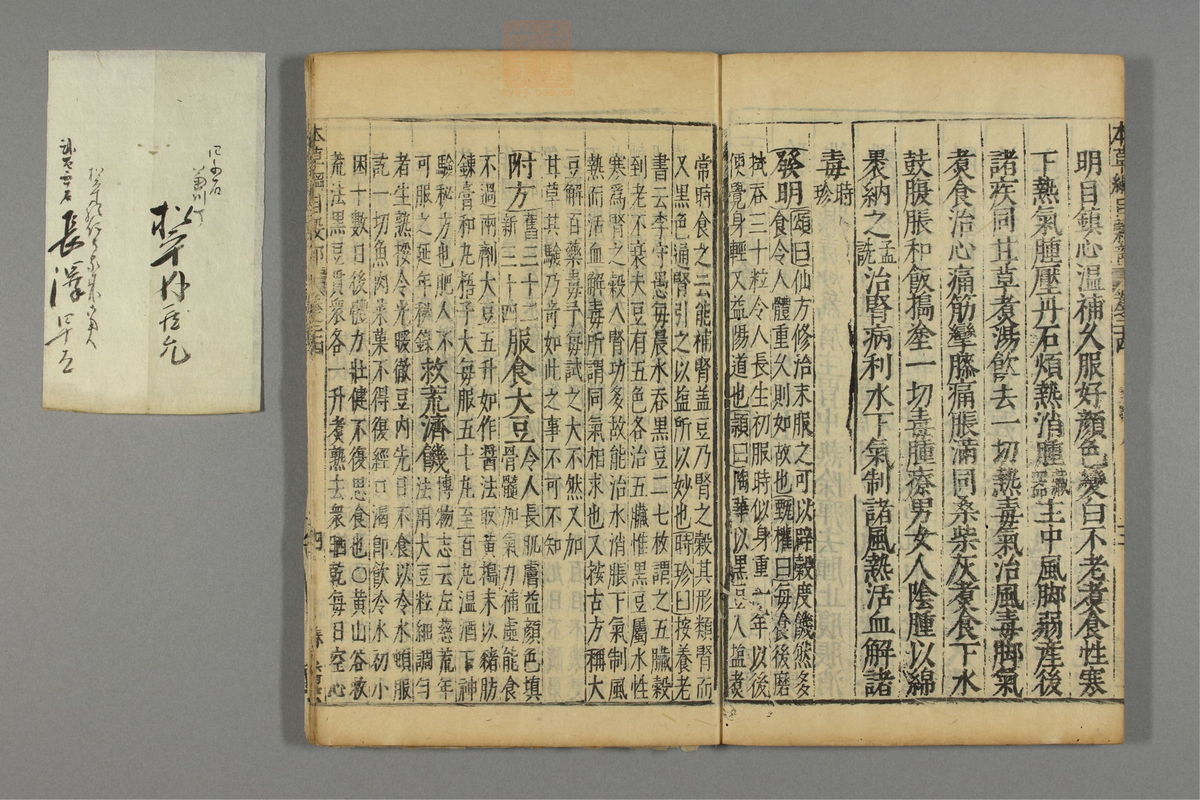 明目鎮心温補久服好顔色變白不老煮食性寒
下熱氣腫壓丹石煩熱消腫藏器主中風脚弱産後
諸疾同甘草煮湯飲去一切熱毒氣治風毒脚氣
煮食治心痛筋攣膝痛脹滿同桑柴灰煮食下水
鼓腹脹和飯搗塗一切毒腫療男女人陰腫以綿
褁納之孟詵治腎病利水下氣制諸風熱活血解諸
毒時珍
發明頌曰仙方修治末服之可以辟穀度饑然多
食令人體重久則如故也甄權曰每食後磨
拭吞三十粒令人長生初服時似身重一年以後
便覺身輕又益陽道也頴曰陶華以黒豆入塩煮
常時食之云能補腎盖豆乃腎之穀其形類腎而
又黒色通腎引之以塩所以妙也時珍曰按養老
書云李守愚每晨水吞黒豆二七枚謂之五臟穀
到老不衰夫豆有五色各治五臟惟黒豆屬水性
寒爲腎之穀入腎功多故能治水消脹下氣制風
熱而活血解毒所謂同氣相求也又按古方稱大
豆解百藥毒予每試之大不然又加
甘草其驗乃竒如此之事不可不知
附方舊三十二新三十四服食大豆令人長肌膚益顔色填
骨髓加氣力補虚能食
不過兩劑大豆五升如作醤法取黄搗末以豬肪
鍊膏和丸梧子大每服五十丸至百丸温酒下神
驗秘方也肥人不可服之延年秘錄救荒濟饑博物志云左慈荒年
法用大豆粒細調匀
者生熟挼令光暖徹豆内先日不食以冷水頓服
訖一切魚肉菜菓不得復經口渴即飲冷水初小
困十數日後體力壮健不復思食也○黄山谷救
荒法黒豆貫衆各一升煮熟去衆晒乾每日空心
長澤